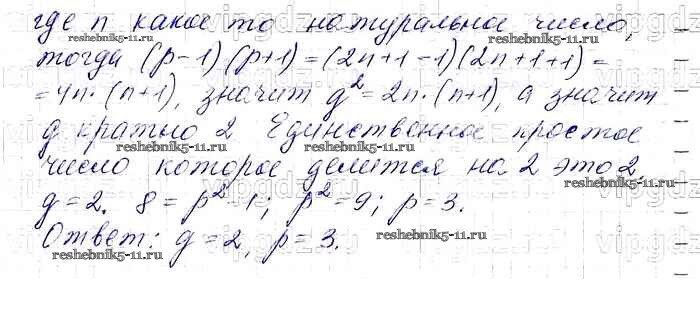 где n какое то натуральное число,
тогда (p-1)(p+1)=(2n+1-1)(2n+1+1)=
=4n·(n+1), значит g²=2n·(n+1), а значит
g кратно 2 Единственное простое
число которое делится на 2 это 2.
g=2. 8=p²-1; p²=9; p=3.
Ответ: g=2, p=3.
reshebnik5-11.ru
reshebnik5-11.ru
reshebnik5-11.ru
reshebnik5-11.ru
reshebnik5-11.ru
reshebnik5-11.ru
reshebnik5-11.ru
vipgdz
vipgdz
vipgdz
vipgdz